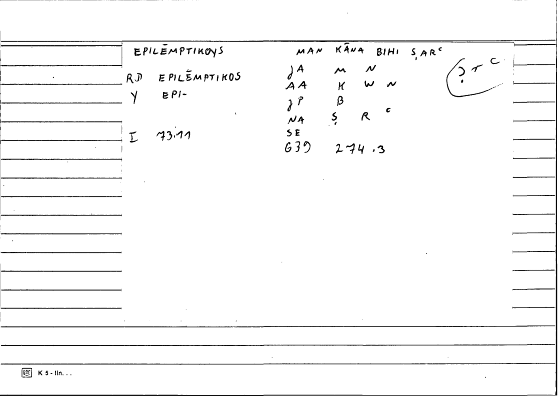 EPILĒMPTIKOYS MAN KĀNA BIHI ṢARᶜ
ṣrᶜ
RD EPILĒMPTIKOS JA M N
Y EPI- AA K W N
JP B
NA Ṣ R ᶜ
I 73.11 SE
G39 274.3
K 5 - lin...